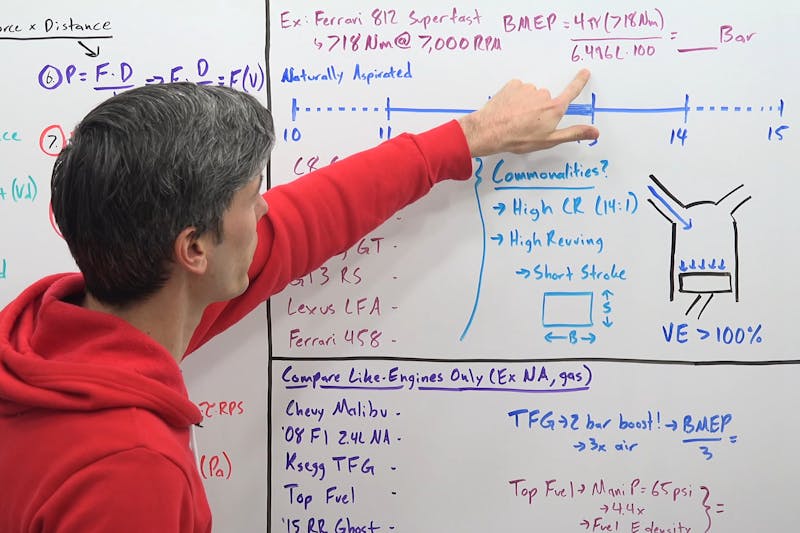 orce x Distance
6. P = F.D → F. D = F(V)
7.
ce
t (Vd)
d
τ RPS
(Pa)
Ex: Ferrari 812 Superfast
↳ 718 Nm @ 7,000 RPM
BMEP = 4π(718 Nm) = ___ Bar
6.496L·100
Naturally Aspirated
10 11 14 15
GT -
GT3 RS
Lexus LFA -
Ferrari 458 -
Commonalities?
→ High CR (14:1)
→ High Revving
→ Short Stroke
S
B
VE > 100%
Compare Like-Engines Only (Ex NA, gas)
Chevy Malibu -
'08 F1 2.4L NA -
Ksegg TFG -
Top Fuel -
'15 RR Ghost -
TFG → 2 bar boost! → BMEP =
→ 3x air
3
Top Fuel → Mani P = 65 psi
→ 4.4x
→ Fuel E density
} =